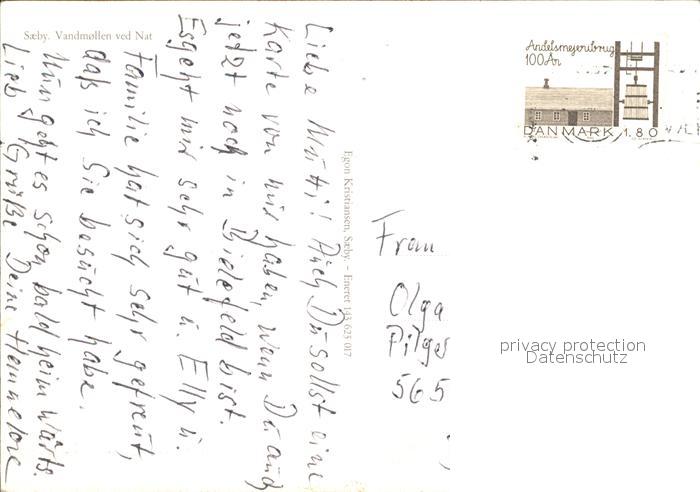 Sæby. Vandmøllen ved Nat
Liebe Mutti! Auch Du sollst eine
Karte von mir haben, wenn Du auch
jetzt noch in Bielefeld bist.
Es geht mir sehr gut u. Elly u.
Familie hat sich sehr gefreut,
daß ich Sie besucht habe.
Nun geht es schon bald heimwärts.
Liebe Grüße Deine Hannelore
Egon Kristiansen, Sæby. – Eneret 143 625 017
Andelsmejeribrug
100 År
DANMARK 1.80
Frau
Olga
Pilges
565
privacy protection
Datenschutz